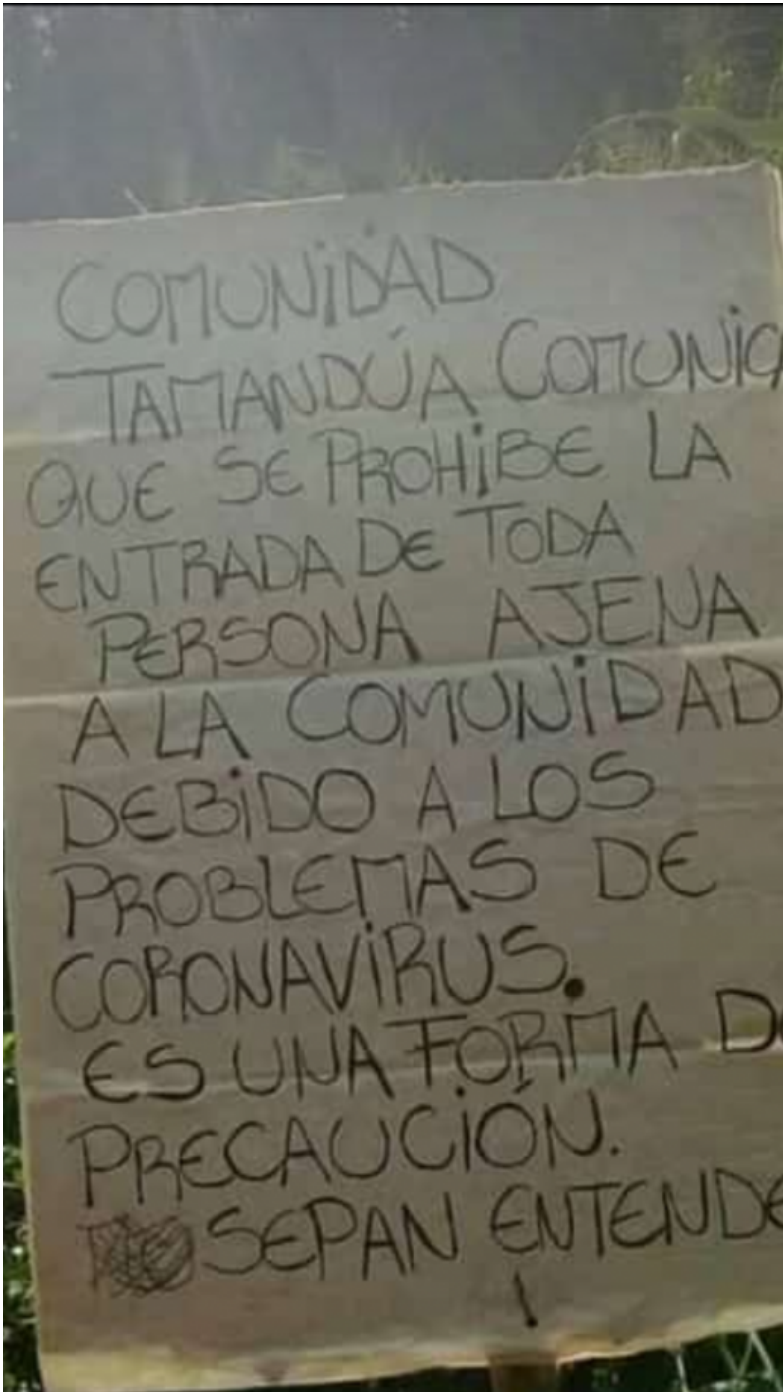 COMUNiDAD
TAMANDÚA COMUNiCA
QUE SE PROHiBE LA
ENTRADA DE TODA
PERSONA AJENA
A LA COMUNiDAD
DEBiDO A LOS
PROBLEMAS DE
CORONAViRUS.
ES UNA FORMA DE
PRECAUCiÓN.
SEPAN ENTENDE
!